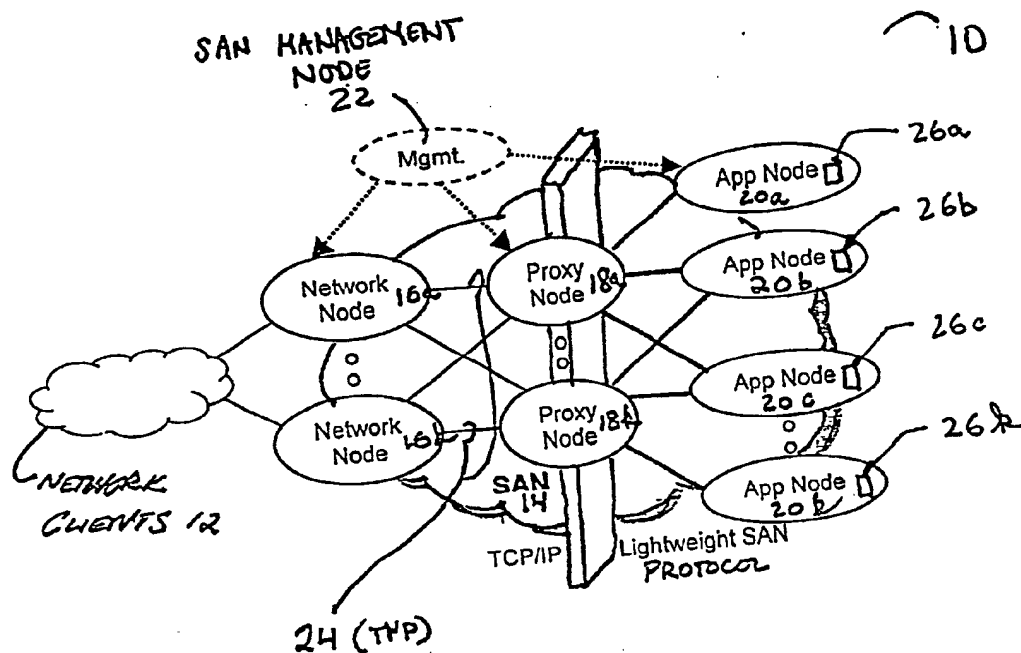 SAN MANAGEMENT
NODE
22
10
Mgmt.
26a
App Node
20a
26b
App Node
20b
Network
Node 16a
Proxy
Node 18a
26c
App Node
20c
Network
Node
Proxy
Node 18k
26k
App Node
20k
SAN
14
NETWORK
CLIENTS 12
TCP/IP
Lightweight SAN
PROTOCOL
24 (TNP)